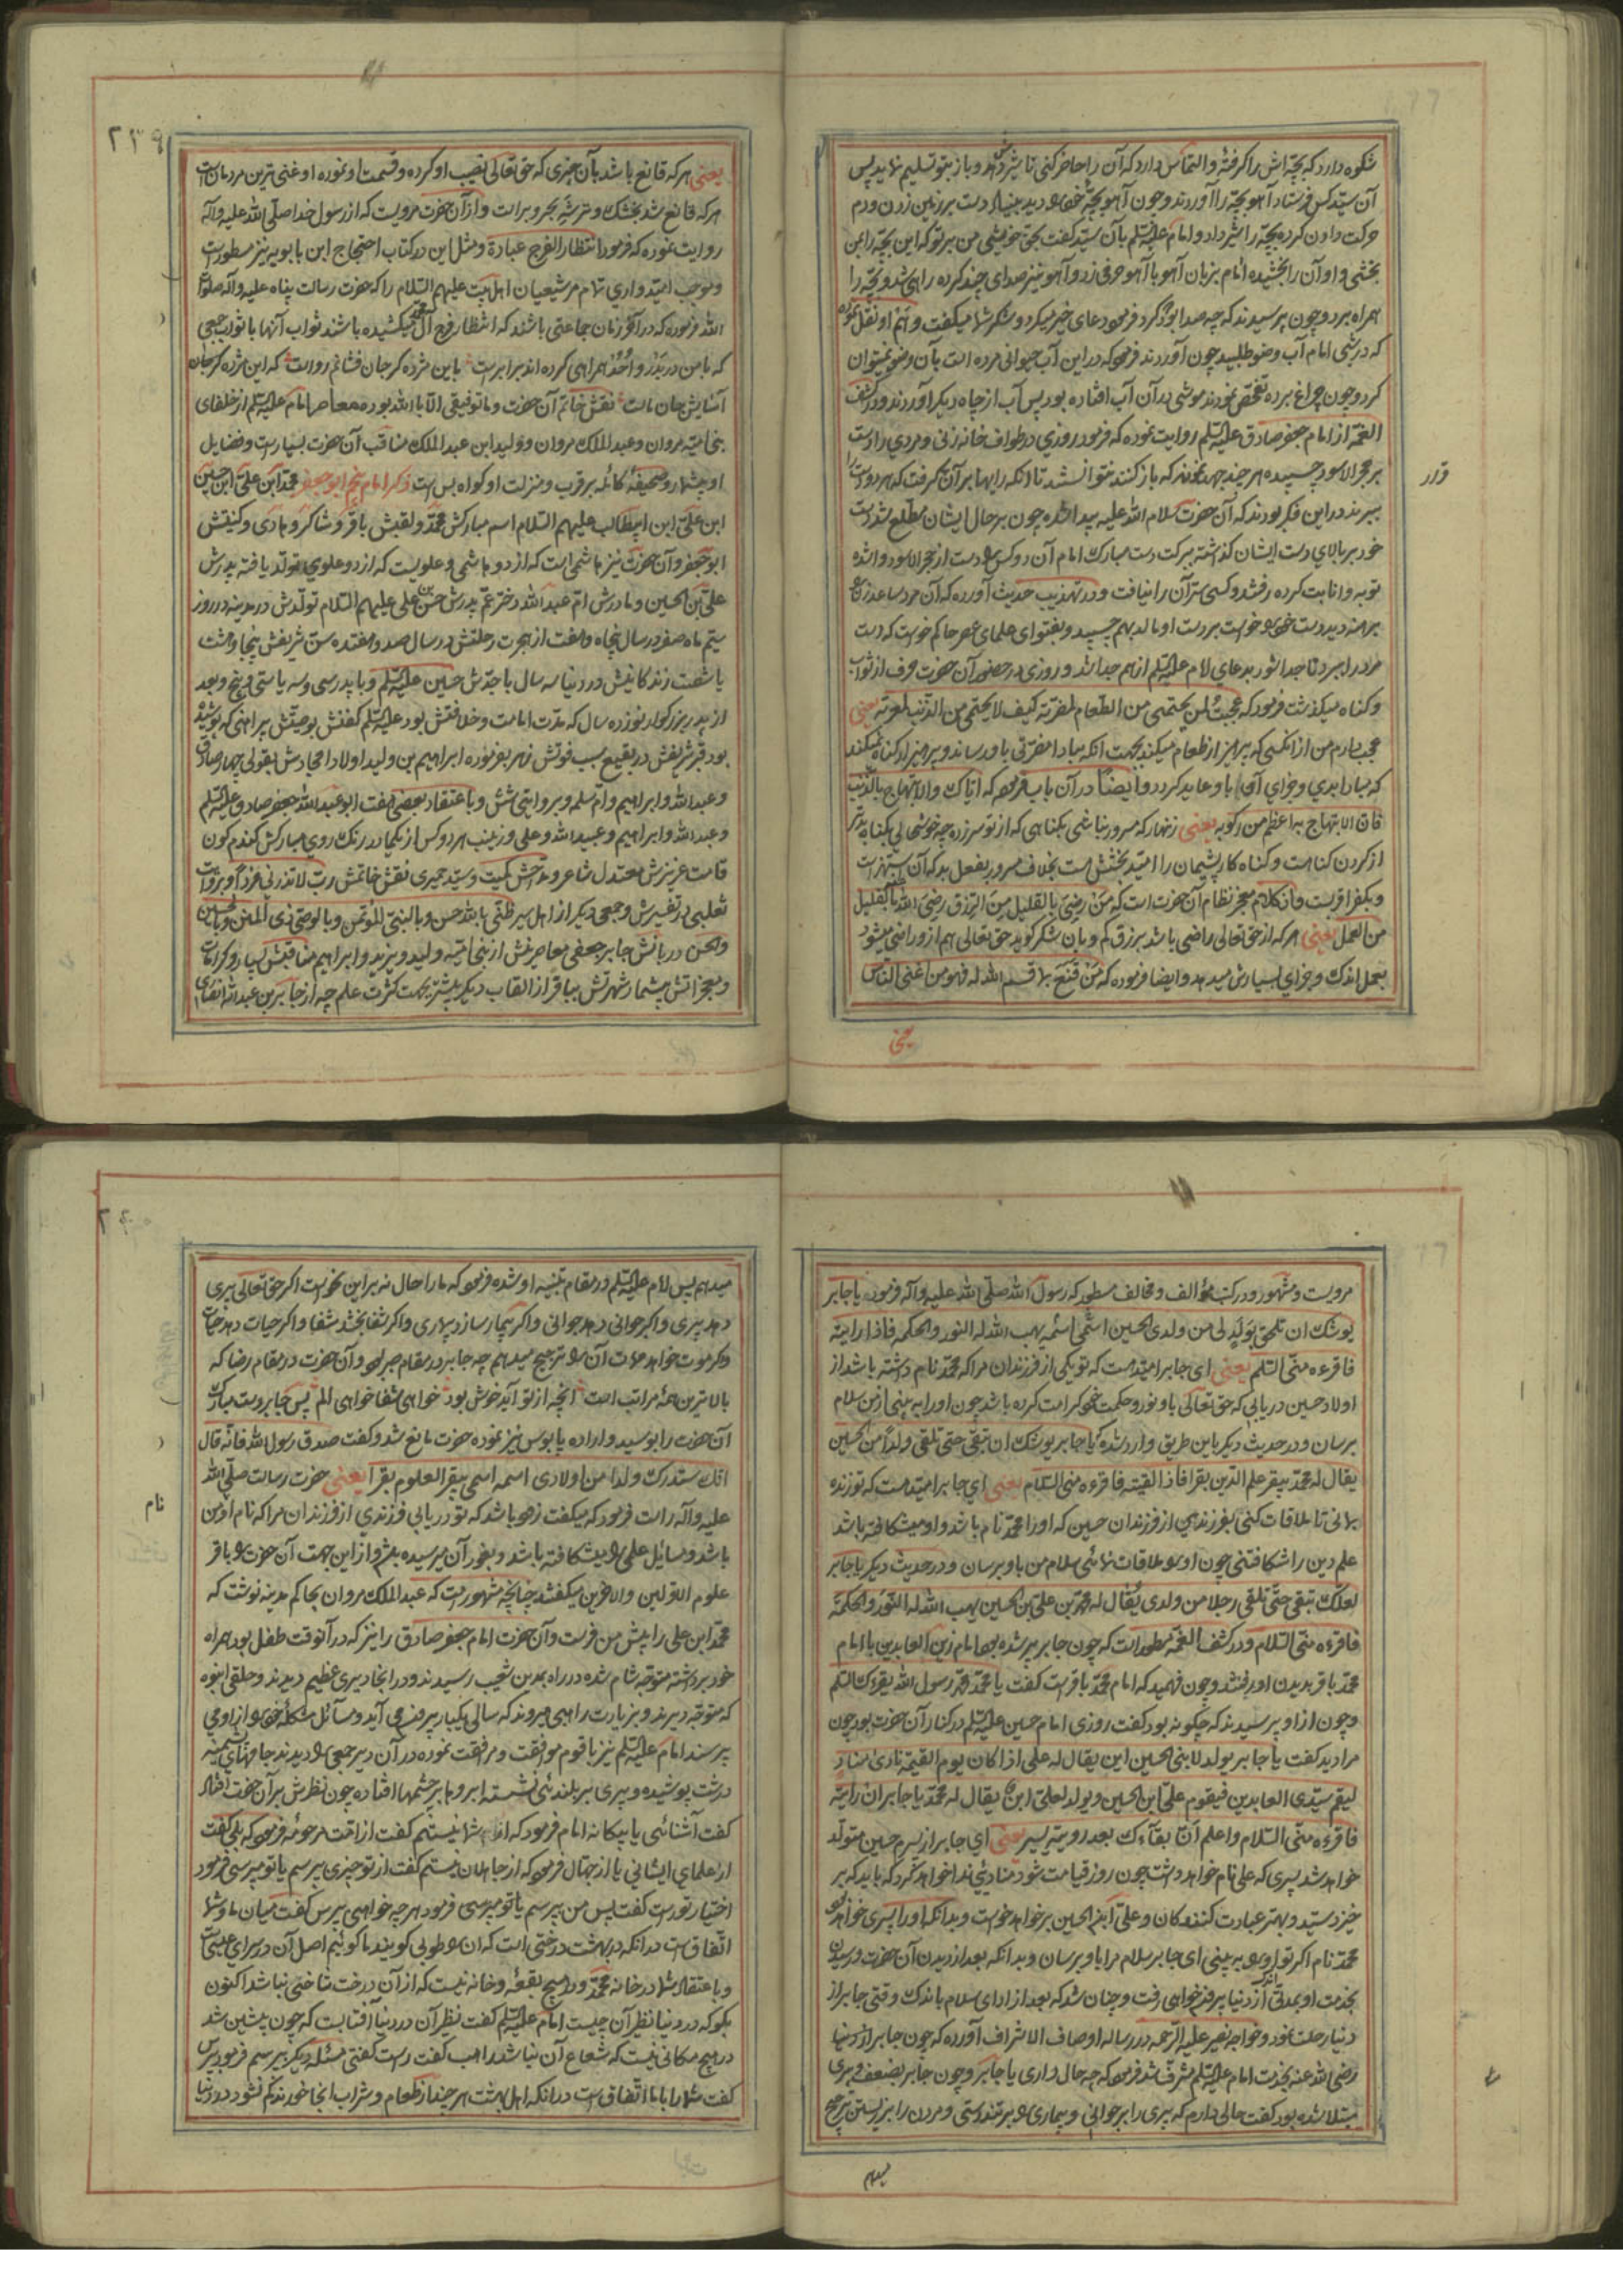 شکوه دارد که بچّه‌اش را گرفته و التماس دارد که آن را حاضر کنی تا شیر دهد و باز بتو تسلیم نماید پس
آن سیّد کس فرستاد آهو بچّه را آوردند و چون آهو بچّه خود دید بنیاد دست بر زمین زدن و دم
حرکت دادن کرده بچّه را شیر داد و امام علیه السّلم بآن سیّد گفت بحق خویشی من بر تو که این بچّه را بمن
بخشی و او آن را بخشیده امام بزبان آهو با آهو حرفی زد و آهو نیز صدای چند کرده راهی شد و بچّه را
همراه برد و چون پرسیدند که چه صدا بود که کرد فرمود دعای خیر میکرد و شکر شما میکفت و هم او نقل نموده
که در شبی امام آب وضو طلبید چون آوردند فرمود که در این آب حیوانی مرده است بآن وضو نمیتوان
کرد و چون چراغ برده تفحّص نمودند موشی در آن آب افتاده بود پس آب از چاه دیکر آوردند و در کشف
الغمّه از امام جعفر صادق علیه السّلم روایت نموده که فرمود روزی در طواف خانه زنی و مردی را دست
بر حجر الاسود چسپیده هر چند جهد نمودند که باز کنند نتوانستند تا آنکه رایها بر آن گرفت که هر دو دست را
ببرند در این فکر بودند که آن حضرت سلام الله علیه پیدا شده چون بر حال ایشان مطّلع شد دست
خود بر بالای دست ایشان گذاشته ببرکت دست مبارک امام آن دو کس را دست از حجر الاسود وا شده
توبه و انابت کرده رفتند و کسی سرّ آن را نیافت و در تهذیب حدیث آورده که آن مرد ساعد زن را
برهنه دید دست خود خواست بر دست او مالد بهم چسپید و بفتوای علمای عصر حاکم خواست که دست
مرد را ببرد تا جدا شود بدعای امام علیه السّلم از هم جدا شد و روزی در حضور آن حضرت حرف از ثواب
و کناه میکذشت فرمود که عجبت لمن یحتمی من الطّعام لمضرّته کیف لا یحتمی من الذّنب لمعرّته یعنی
عجب دارم من از آنکسی که پرهیز از طعام میکند بجهت آنکه مبادا مضرّتی باو رساند و پرهیز از کناه نمیکند
که مبادا بدی و جزای آن باو عاید کردد و ایضا در آن باب فرموده که ایّاک والابتهاج بالذّنب
فانّ الابتهاج به اعظم من رکوبه یعنی زنهار که مسرور نباشی بکناهی که از تو سرزده چه خوشحالی بکناه بدتر
از کردن کناه است و کناه کار پشیمان را امید بخشش است بخلاف مسرور بفعل بد که آن استهزا است
و بکفر اقربست و از کلام معجز نظام آن حضرت است که من رضی بالقلیل من الرّزق رضی الله بالقلیل
من العمل یعنی هر که از حق تعالی راضی باشد برزق کم و بآن شکر کوید حق تعالی هم از او راضی میشود
بعمل اندک و جزای بسیارش میدهد و ایضا فرموده که من قنع بما قسم الله له فهو من اغنی النّاس
یعنی
۲۳۹
یعنی هر که قانع باشد بآن چیزی که حق تعالی نصیب او کرده و قسمت او نموده او غنی ترین مردمان است
هر که قانع شد بخشک و تر شه بحر و بر است و از آن حضرت مرویست که از رسول خدا صلّی الله علیه و آله
روایت نموده که فرمود انتظار الفرج عبادة و مثل این در کتاب احتجاج ابن بابویه نیز مسطور است
و موجب امیدواری تمام مر شیعیان اهل بیت علیهم السّلام را که حضرت رسالت پناه علیه و آله صلوات
الله فرموده که در آخر زمان جماعتی باشند که انتظار فرج آل محمّد میکشیده باشند ثواب آنها با ثواب جمعی
که با من در بدر و احد همراهی کرده‌اند برابر است باین مژده کر جان فشانم رواست که این مژده کر جان
آسایش جان ماست نقش خاتم آن حضرت و ما توفیقی الّا بالله بوده معاصر امام علیه السّلم از خلفای
بنی امیّه مروان و عبد الملک مروان و ولید ابن عبد الملک مناقب آن حضرت بسیار است و فضایل
او بیشمار و صحیفهٔ کامله بر قرب و منزلت او کواه بس است ذکر امام پنجم ابو جعفر محمّد ابن علیّ ابن حسین
ابن علیّ ابن ابیطالب علیهم السّلام اسم مبارکش محمّد و لقبش باقر و شاکر و هادی و کنیتش
ابو جعفر و آن حضرت نیز هاشمی است که از دو هاشمی و علویست که از دو علوی تولّد یافته پدرش
علیّ بن الحسین و مادرش امّ عبد الله دختر عمّ پدرش حسن بن علی علیهم السّلام تولّدش در مدینه در روز
سیّم ماه صفر در سال پنجاه و هفت از هجرت رحلتش در سال صد و هفتده سنّ شریفش پنجاو هشت
یا شصت زندکانیش در دنیا سه سال با جدّش حسین علیه السّلم و با پدر سی و سه یا سی و پنج و بعد
از پدر بزرکوار نوزده سال که مدّت امامت و خلافتش بود علیه السّلم کفنش بوصیّتش پیراهنی که پوشیده
بود قبر شریفش در بقیع سبب فوتش زهر بفرموده ابراهیم بن ولید اولاد امجادش بقولی چهار صادق
و عبد الله و ابراهیم و ام سلمه و بروایتی شش و باعتقاد بعضی هفت ابو عبد الله جعفر صادق علیه السّلم
و عبد الله و ابراهیم و عبید الله و علی و زینب هر دو کس از یکمادر رنک روی مبارکش کندم کون
قامت عزیزش معتدل شاعر و مدّاحش کمیت و سیّد حمیری نقش خاتمش ربّ لا تذرنی فردا و بروایت
ثعلبی در تفسیرش و جمعی دیکر از اهل سیر ظنّی بالله حسن و بالنبیّ المؤتمن و بالوصیّ ذی المنن و بالحسین
والحسن دربانش جابر جعفی معاصرینش از بنی امیّه ولید و یزید و ابراهیم مناقبش بسیار و کرامات
و معجزاتش بیشمار شهرتش بباقر از القاب دیکر بیشتر بجهت کثرت علم چه از جابر بن عبد الله انصاری
مرویست و مشهور و در کتب مؤالف و مخالف مسطور که رسول الله صلّی الله علیه و آله فرموده یا جابر
یوشک ان تلحق بولد لی من ولدی الحسین اسمه اسمی یهب الله له النور والحکمه فاذا رایته
فاقرءه منّی السّلم یعنی ای جابر امید هست که تو یکی از فرزندان مرا که محمّد نام داشته باشد از
اولاد حسین دریابی که حق تعالی باو نور و حکمت خود کرامت کرده باشد چون او را به بینی از من سلام
برسان و در حدیث دیکر باین طریق وارد شده که یا جابر یوشک ان تبقی حتی تلقی ولدا من الحسین
یقال له محمّد یبقر علم الدّین بقرا فاذا لقیته فاقرءه منی السّلام یعنی ای جابر امید هست که تو زنده
بمانی تا ملاقات کنی بفرزندی از فرزندان حسین که او را محمّد نام باشد و او میشکافته باشد
علم دین را شکافتنی چون او را ملاقات نمائی سلام من باو برسان و در حدیث دیکر یا جابر
لعلّک تبقی حتّی تلقی رجلا من ولدی یقال له محمّد بن علیّ بن الحسین یهب الله له النّور والحکمه
فاقرءه منّی السّلام و در کشف الغمّه مسطور است که چون جابر پیر شده بود امام زین العابدین با امام
محمّد باقر بدیدن او رفتند و چون فهمید که امام محمّد باقر است کفت یا محمّد محمّد رسول الله یقرءک السّلم
و چون از او پرسیدند که چکونه بود کفت روزی امام حسین علیه السّلم در کنار آن حضرت بود چون
مرا دید کفت یا جابر یولد لابنی الحسین ابن یقال له علی اذا کان یوم القیمة نادی مناد
لیقم سیّدی العابدین فیقوم علیّ ابن الحسین و یولد لعلیّ ابن یقال له محمّد یا جابر ان رایته
فاقرءه منّی السّلام واعلم انّ بقآءک بعد رویته یسیر یعنی ای جابر از پسرم حسین متولّد
خواهد شد پسری که علی نام خواهد داشت چون روز قیامت شود منادیئی ندا خواهد کرد که باید که بر
خیزد سیّد و بهتر عبادت کنندکان و علیّ ابن الحسین بر خواهد خواست و بدانکه او را پسری خواهد بود
محمّد نام اکر تو او را به بینی ای جابر سلام مرا باو برسان و بدانکه بعد از دیدن آن حضرت و رسیدن
بخدمت او بمدتی اندک از دنیا بیرون خواهی رفت و چنان شد که بعد از ادای سلام باندک وقتی جابر از
دنیا رحلت نمود و خواجه نصیر علیه الرّحمه در رساله اوصاف الاشراف آورده که چون جابر از دنیا
رضی الله عنه بخدمت امام علیه السّلم مشرّف شد فرمود که چه حال داری یا جابر و چون جابر بضعف پیری
مبتلا شده بود کفت حالی دارم که پیری را بر جوانی و بیماری را بر تندرستی و مردن را بر زیستن ترجیح
میدهم
میدهم پس امام علیه السّلم در مقام تنبیه او شده فرمود که ما را حال نه بر این نحو است اکر حق تعالی پیری
دهد پیری و اکر جوانی دهد جوانی و اکر بیمار سازد بیماری و اکر شفا بخشد شفا و اکر حیات دهد حیات
و کر موت خواهد ممات آن را ترجیح میدهم چه جابر در مقام صبر بود و آن حضرت در مقام رضا که
بالاترین همه مراتب است آنچه از تو آید خوش بود خواهی شفا خواهی الم پس جابر دست مبارک
آن حضرت را بوسید و اراده پابوس نیز نموده حضرت مانع شد و کفت صدق رسول الله فانّه قال
انّک ستدرک ولدا من اولادی اسمه اسمی یبقر العلوم بقرا یعنی حضرت رسالت صلّی الله
علیه و آله راست فرمود که میکفت زود باشد که تو دریابی فرزندی از فرزندان مرا که نام او من
باشد و مسائل علمی را میشکافته باشد و بغور آن میرسیده باشد و از این جهت آن حضرت را باقر
علوم الاوّلین والاخرین میکفتند چنانچه مشهور است که عبد الملک مروان بحاکم مدینه نوشت که
محمّد ابن علی را پیش من فرست و آن حضرت امام جعفر صادق را نیز که در آنوقت طفل بود همراه
خود برداشته متوجّه شام شده در راه بمدین شعیب رسیدند و در انجا دیری عظیم دیدند و خلقی انبوه
که متوجّه دیرند و بزیارت راهبی میروند که سالی یکبار بیرون می آید و مسائل مشکله خود را از او می
پرسند امام علیه السّلم نیز با قوم موافقت و مرافقت نموده در آن دیر جمعی را دیدند جامهای پشمینه
درشت پوشیده و پیری بر بلندئی نشسته ابروها بر چشمها افتاده چون نظرش بر آن حضرت افتاد
کفت آشنائی یا بیکانه امام فرمود که از شما نیستم کفت از امّت مرحومه فرمود که بلی کفت
از علمای ایشانی یا از جهّال فرمود که از جاهلان نیستم کفت از تو چیزی بپرسم یا تو میپرسی فرمود
اختیار تو راست کفت پس من بپرسم یا تو میپرسی فرمود هر چه خواهی بپرس کفت میان ما و شما
اتّفاق است در آنکه در بهشت درختی است که آن را طوبی کویند ما کوئیم اصل آن در سرای عیسی است
و باعتقاد شما در خانه محمّد و در هیچ بقعه و خانه نیست که از آن درخت شاخی نباشد اکنون
بکو که در دنیا نظیر آن چیست امام علیه السّلم کفت نظیر آن در دنیا آفتابست که چون پیشین شد
در هیچ مکانی نیست که شعاع آن نباشد راهب کفت راست کفتی مسئله دیکر بپرسم فرمود بپرس
کفت شما را با ما اتّفاق است در آنکه اهل بهشت هر چند از طعام و شراب انجا خورند کم نشود در دنیا
نام